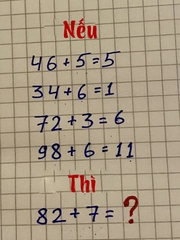 Nếu
46+5=5
34+6=1
72+3=6
98+6=11
Thì
82+7=?